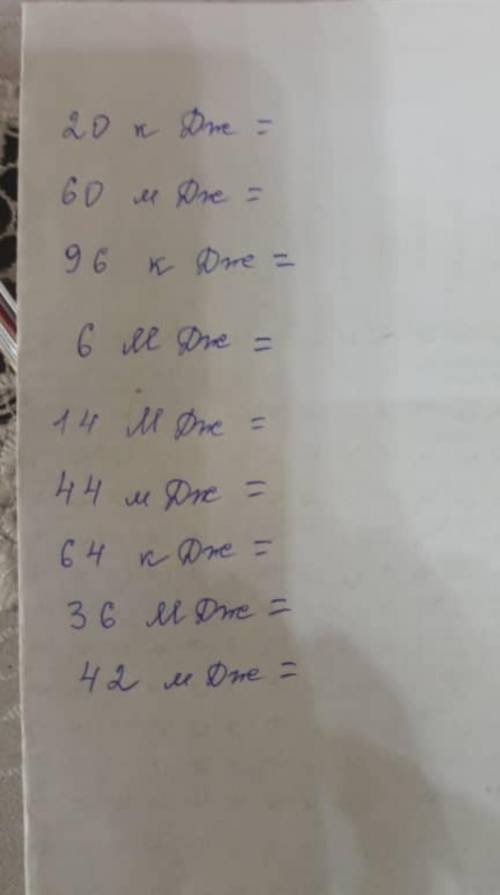 20 к Дж =
60 м Дж =
96 к Дж =
6 М Дж =
14 М Дж =
44 м Дж =
64 к Дж =
36 М Дж =
42 м Дж =